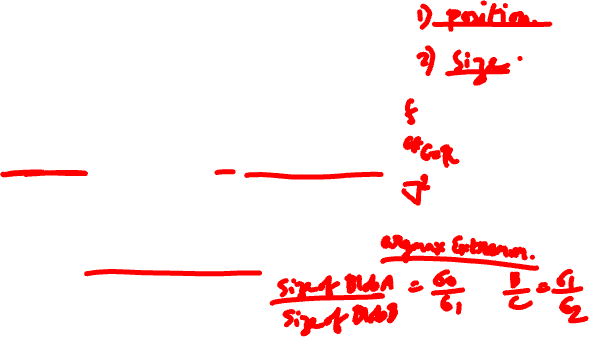 1) position.
2) Size.
f
∇²
argmax Extremum.
Size of Blob A / Size of Blob B = σ0 / σ1 B / C = σ1 / σ2